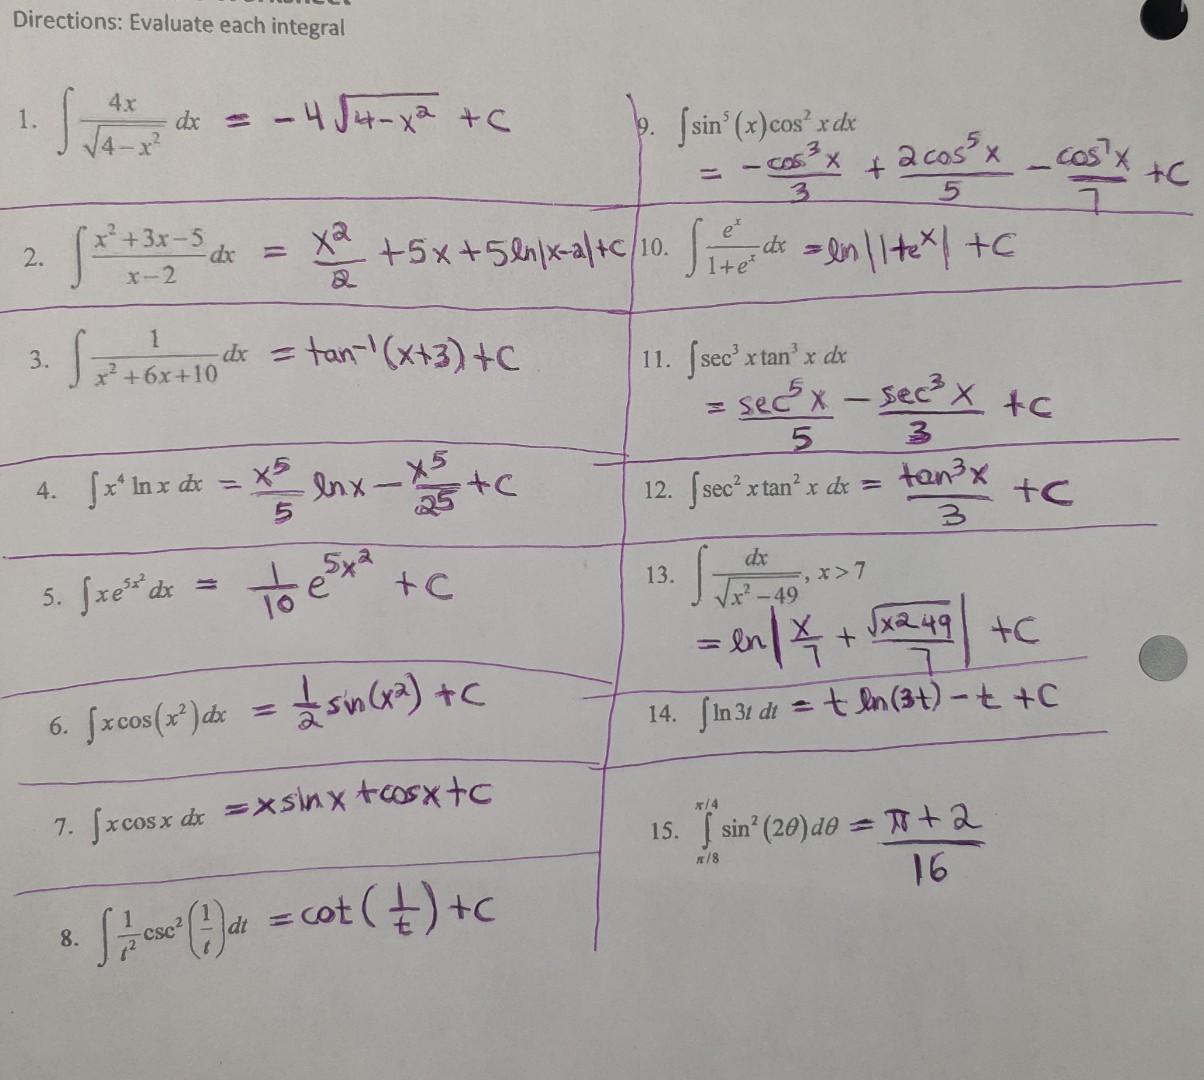 Directions: Evaluate each integral
1. ∫ 4x/√(4−x²) dx = −4√(4−x²) + C
2. ∫ (x²+3x−5)/(x−2) dx = x²/2 + 5x + 5ln|x−2| + C
3. ∫ 1/(x²+6x+10) dx = tan⁻¹(x+3) + C
4. ∫x⁴ ln x dx = x⁵/5 ln x − x⁵/25 + C
5. ∫xe^(5x²) dx = 1/10 e^(5x²) + C
6. ∫x cos(x²) dx = 1/2 sin(x²) + C
7. ∫x cos x dx = x sin x + cos x + C
8. ∫ 1/t² csc²(1/t) dt = cot(1/t) + C
9. ∫sin⁵(x)cos² x dx
= −cos³x/3 + 2cos⁵x/5 − cos⁷x/7 + C
10. ∫ eˣ/(1+eˣ) dx = ln|1+eˣ| + C
11. ∫sec³ x tan³ x dx
= sec⁵x/5 − sec³x/3 + C
12. ∫sec² x tan² x dx = tan³x/3 + C
13. ∫ dx/√(x²−49), x > 7
= ln|x/7 + √(x²−49)/7| + C
14. ∫ln 3t dt = t ln(3t) − t + C
15. ∫_(π/8)^(π/4) sin²(2θ) dθ = (π+2)/16